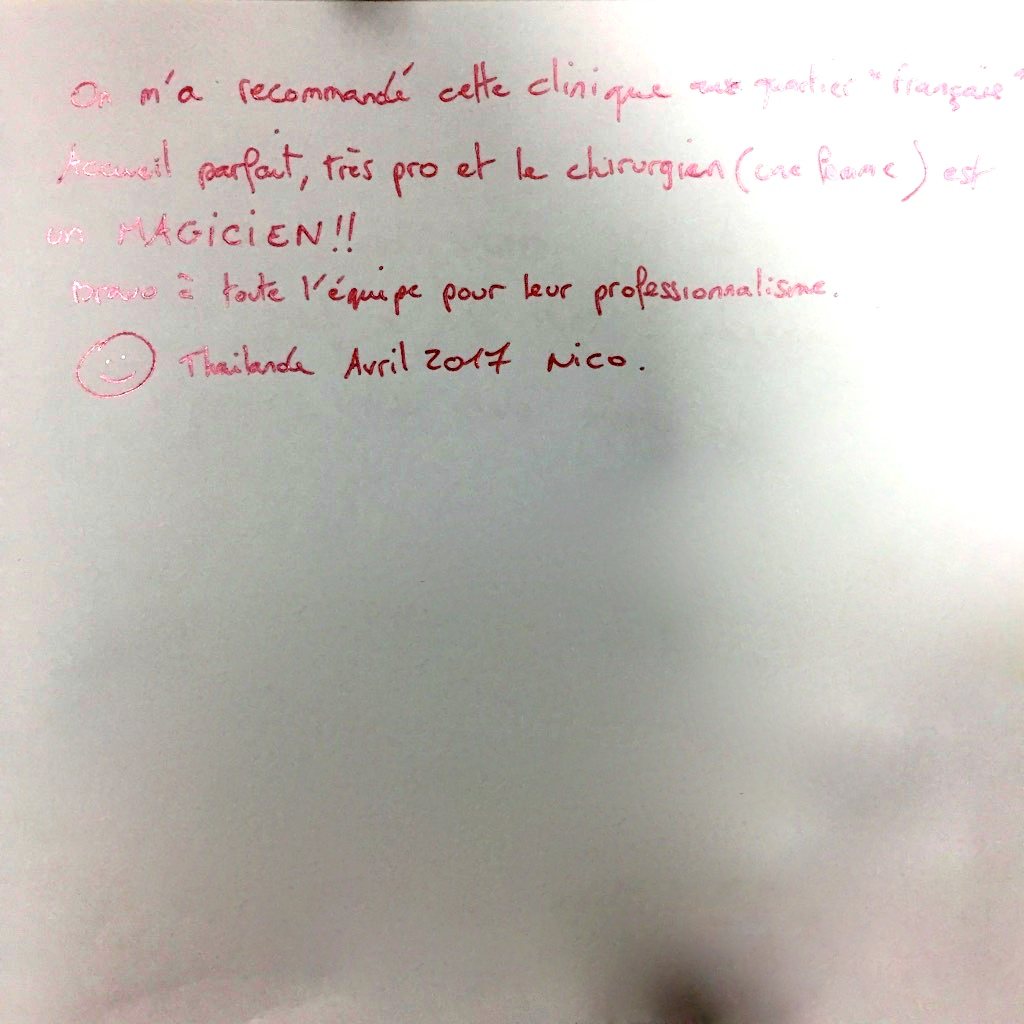 On m'a recommandé cette clinique quartier "français"
Accueil parfait, très pro et le chirurgien (une femme) est
un MAGICIEN!!
Bravo à toute l'équipe pour leur professionnalisme.
Thailande Avril 2017 Nico.